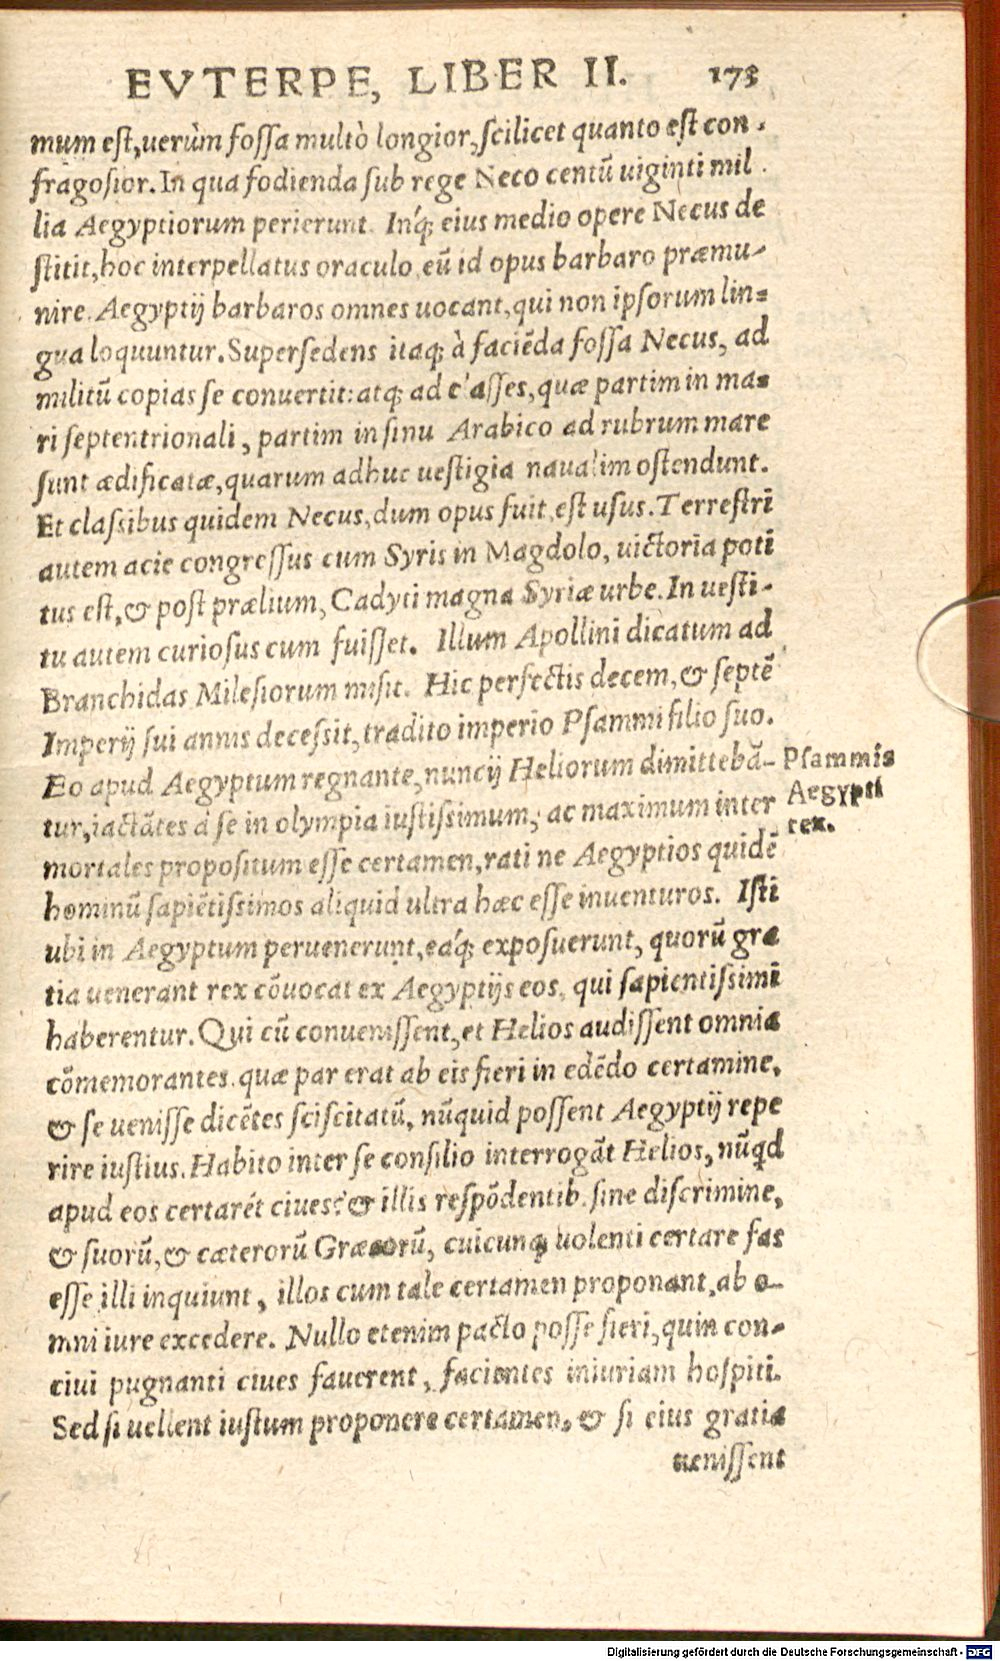 EVTERPE, LIBER II. 173
mum est, uerùm fossa multò longior, scilicet quanto est con-
fragosior. In qua fodienda sub rege Neco centũ uiginti mil
lia Aegyptiorum perierunt. Inq́; eius medio opere Necus de
stitit, hoc interpellatus oraculo, eũ id opus barbaro præmu-
nire. Aegyptij barbaros omnes uocant, qui non ipsorum lin=
gua loquuntur. Supersedens itaq; à faciẽda fossa Necus, ad
militũ copias se conuertit: atq; ad classes, quæ partim in ma=
ri septentrionali, partim in sinu Arabico ad rubrum mare
sunt ædificatæ, quarum adhuc uestigia naualim ostendunt.
Et classibus quidem Necus, dum opus fuit, est usus. Terrestri
autem acie congressus cum Syris in Magdolo, uictoria poti
tus est, & post prælium, Cadyti magna Syriæ urbe. In uesti-
tu autem curiosus cum fuisset. Illum Apollini dicatum ad
Branchidas Milesiorum misit. Hic perfectis decem, & septẽ
Imperij sui annis decessit, tradito imperio Psammi filio suo.
Eo apud Aegyptum regnante, nuncij Heliorum dimittebã-
tur, iactãtes à se in olympia iustissimum, ac maximum inter
mortales propositum esse certamen, rati ne Aegyptios quidẽ
hominũ sapiẽtissimos aliquid ultra hæc esse inuenturos. Isti
ubi in Aegyptum peruenerunt, eáq; exposuerunt, quorũ gra
tia uenerant rex cõuocat ex Aegyptijs eos, qui sapientissimi
haberentur. Qui cũ conuenissent, et Helios audissent omnia
cõmemorantes. quæ par erat ab eis fieri in edẽdo certamine,
& se uenisse dicẽtes sciscitatũ, nũquid possent Aegyptij repe
rire iustius. Habito inter se consilio interrogãt Helios, nũqd
apud eos certarẽt ciues? & illis respõdentib. sine discrimine,
& suorũ, & cæterorũ Græcorũ, cuicunq; uolenti certare fas
esse, illi inquiunt, illos cum tale certamen proponant, ab o-
mni iure excedere. Nullo etenim pacto posse fieri, quin con-
ciui pugnanti ciues fauerent, facientes iniuriam hospiti.
Sed si uellent iustum proponere certamen, & si eius gratia
uenissent
Psammis
Aegypti
rex.
Digitalisierung gefördert durch die Deutsche Forschungsgemeinschaft - DFG